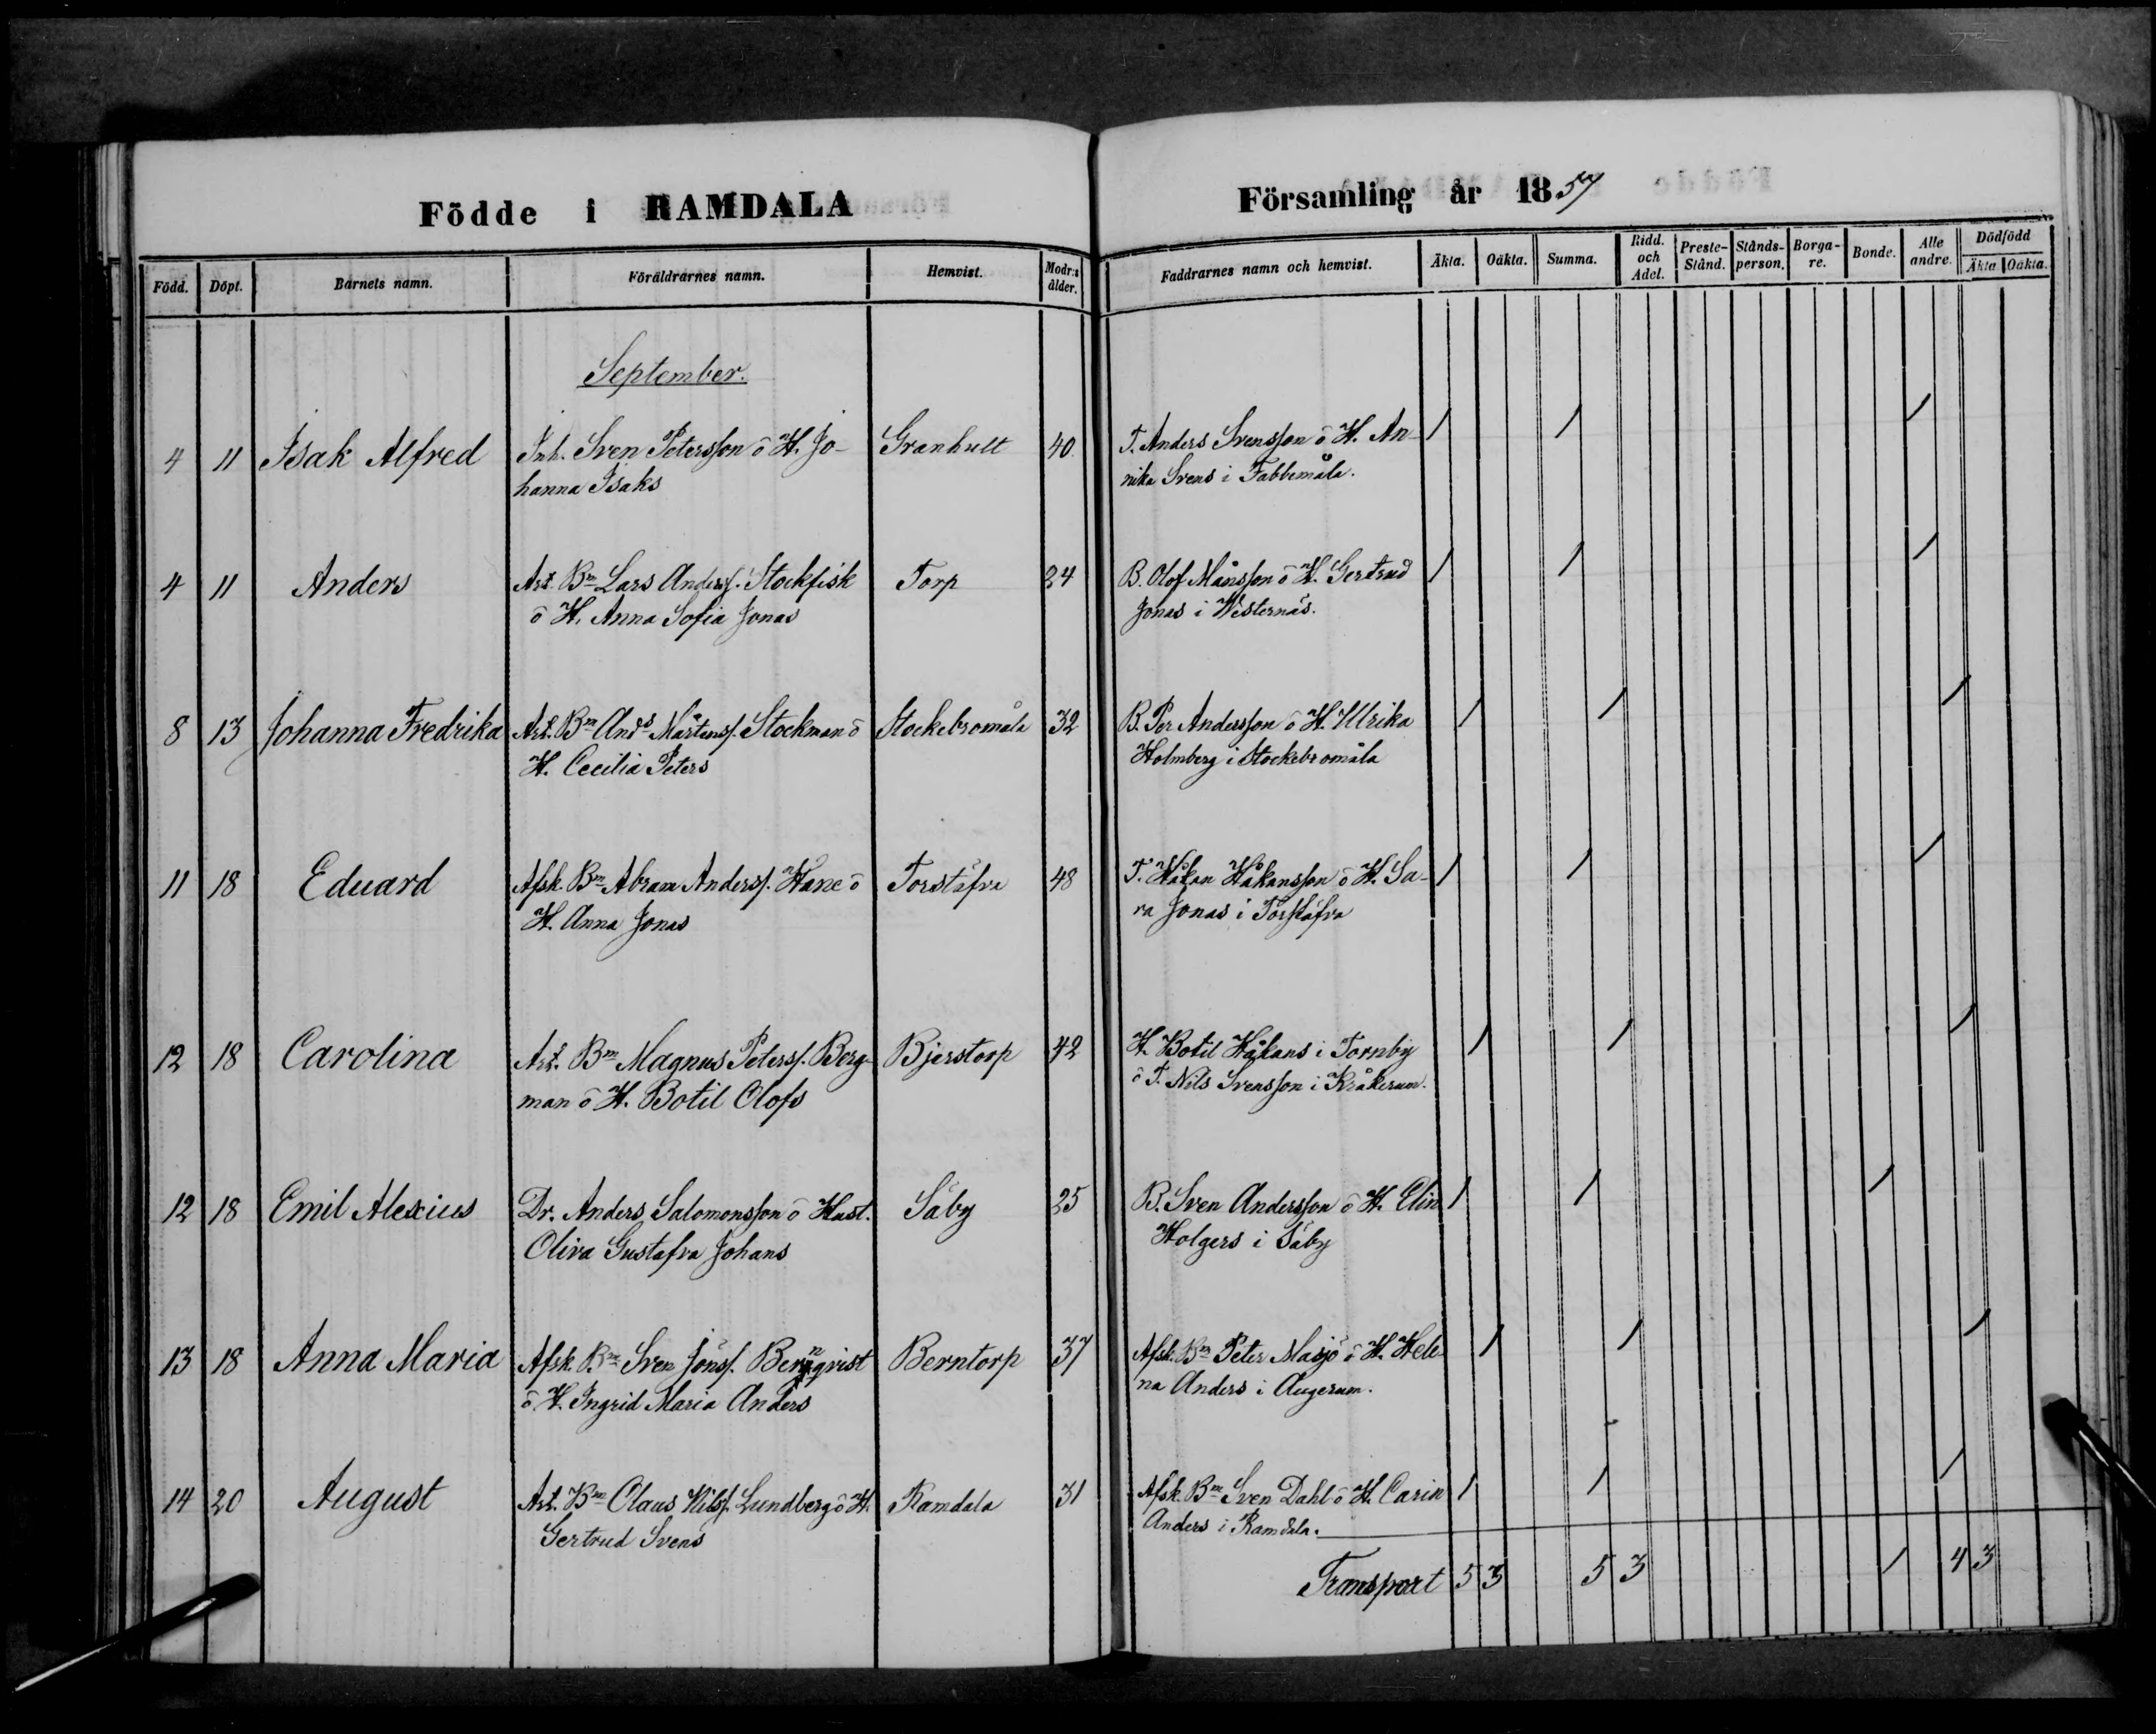 Födde i RAMDALA Församling år 1857
Född. Döpt. Barnets namn. Föräldrarnes namn. Hemvist. Modr:s ålder. Faddrarnes namn och hemvist. Äkta. Oäkta. Summa. Ridd. och Adel. Preste-Stånd. Stånds-person. Borga-re. Bonde. Alle andre. Dödfödd Äkta. Oäkta.
September.
4 11 Isak Alfred Inh. Sven Petersson o H. Jo- Granhult 40 T. Anders Svensson o H. An- 1 1 1
hanna Isaks nika Svens i Fabbemåla.
4 11 Anders Art. Bm Lars Anderss. Stockfisk Torp 24 B. Olof Månsson o H. Gertrud 1 1 1
o H. Anna Sofia Jonas Jonas i Westernäs.
8 13 Johanna Fredrika Art. Bm Ands Mårtenss. Stockman o Stockebromåla 32 B. Per Andersson o H. Ulrika 1 1 1
H. Cecilia Peters Holmberg i Stockebromåla
11 18 Eduard Afsk. Bm Abram Anderss. Hane o Torstäfva 48 T. Håkan Håkansson o H. Sa- 1 1 1
H. Anna Jonas ra Jonas i Torstäfva
12 18 Carolina Art. Bm Magnus Peterss. Berg- Bjerstorp 42 H. Botil Håkans i Tornby 1 1 1
man o H. Botil Olofs o T. Nils Svensson i Kråkerum.
12 18 Emil Alexius Dr. Anders Salomonsson o Hust. Säby 25 B. Sven Andersson o H. Elin 1 1 1
Oliva Gustafva Johans Holgers i Säby
13 18 Anna Maria Afsk. Bm Sven Jönss. Bernqvist Berntorp 37 Afsk. Bm Peter Masjö o H. Hele- 1 1 1
o H. Ingrid Maria Anders na Anders i Augerum.
14 20 August Art. Bm Olaus Nilss. Lundberg o H. Ramdala 31 Afsk. Bm Sven Dahl o H. Carin 1 1 1
Gertrud Svens Anders i Ramdala.
Transport 5 3 5 3 1 4 3